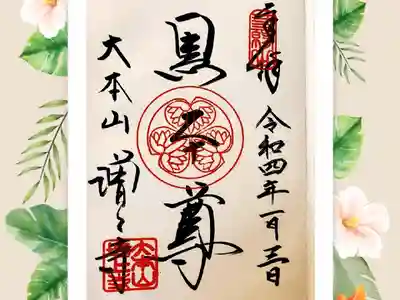 奉拝
令和四年一月三日
黒本尊
大本山
増上寺